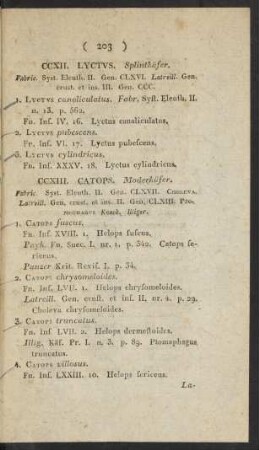 ( 203 )
CCXII. LYCTVS. Splintkäfer.
Fabric. Syst. Eleuth. II. Gen. CLXVI. Latreill. Gen.
crust. et ins. III. Gen. CCC.
1. Lyctvs canaliculatus. Fabr. Syst. Eleuth. II.
n. 13. p. 562.
Fn. Inf. IV. 16. Lyctus canaliculatus,
2. Lyctvs pubescens.
Fr. Inf. VI. 17. Lyctus pubescens.
3. Lyctvs cylindricus.
Fn. Inf. XXXV. 18. Lyctus cylindricus.
CCXIII. CATOPS. Moderkäfer.
Fabric. Syst. Eleuth. II. Gen. CLXVII. Choleva.
Latreill. Gen. crust. et ins. II. Gen. CLXIII. Pto-
momaphagus Knoch, Illiger.
1. Catops fuscus.
Fn. Inf. XVIII. 1. Helops fuscus,
Payk. Fn. Suec. I. nr. 1. p. 342. Catops se-
riceus.
Panzer Krit. Revis. I. p. 34.
2. Catops chrysomeloides.
Fn. Inf. LVII. 1. Helops chrysomeloides.
Latreill. Gen. crust. et ins. II. nr. 4. p. 29.
Choleva chrysomeloides.
3. Catops truncatus.
Fn. Inf. LVII. 2. Helops dermestoides.
Illig. Käf. Pr. I. n. 3. p. 89. Ptomaphagus
truncatus.
4. Catops villosus.
Fn. Inf. LXXIII. 10. Helops sericeus.
La-